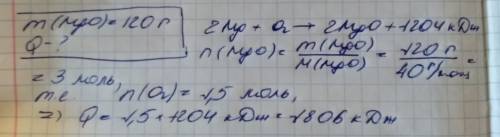 m(MgO)=120г
Q-?
2Mg + O₂ → 2MgO + 1204 кДж
n(MgO)= m(MgO)/M(MgO) = 120 г/40 г/моль =
= 3 моль,
т.е n(O₂) = 1,5 моль,
=> Q = 1,5 × 1204 кДж = 1806 кДж